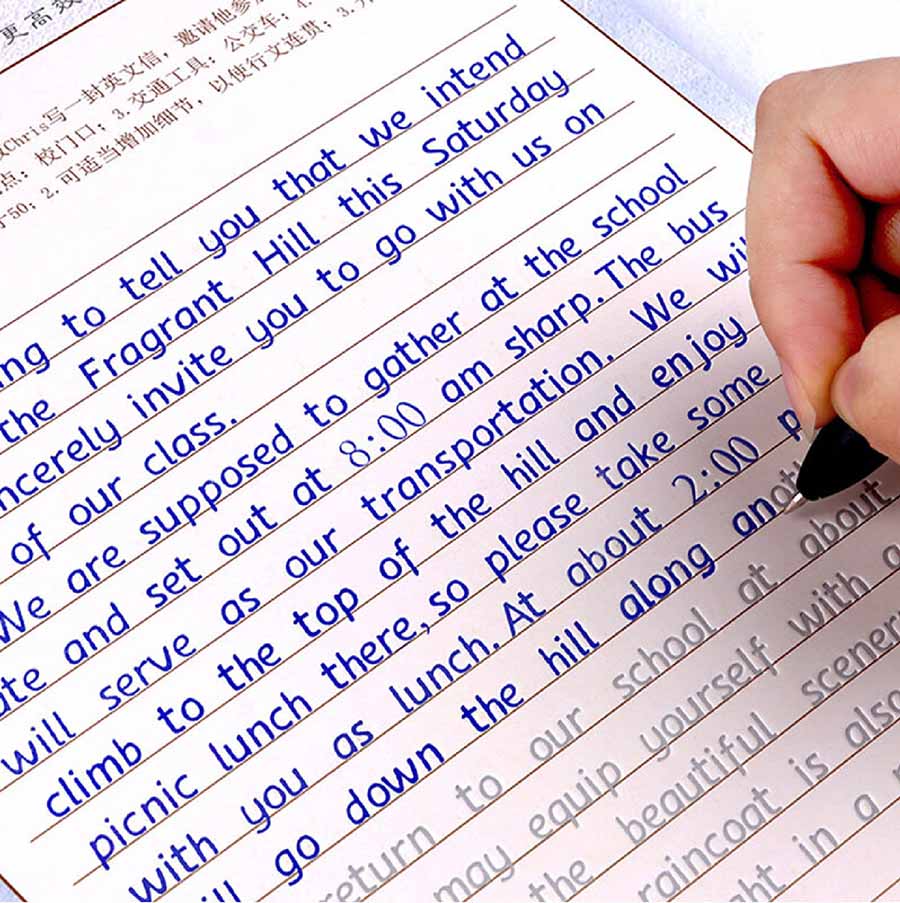 更高效
Chris写一封英文信，邀请他参
点：校门口；3.交通工具：公交车；4.
50；2.可适当增加细节，以使行文连贯；3.
ing to tell you that we intend
the Fragrant Hill this Saturday
ncerely invite you to go with us on
of our class.
We are supposed to gather at the school
ate and set out at 8:00 am sharp. The bus
will serve as our transportation. We wil
climb to the top of the hill and enjoy
picnic lunch there, so please take some
with you as lunch. At about 2:00 p
ill go down the hill along anoth
return to our school at about
may equip yourself with a
the beautiful scenery
raincoat is also
ht in a